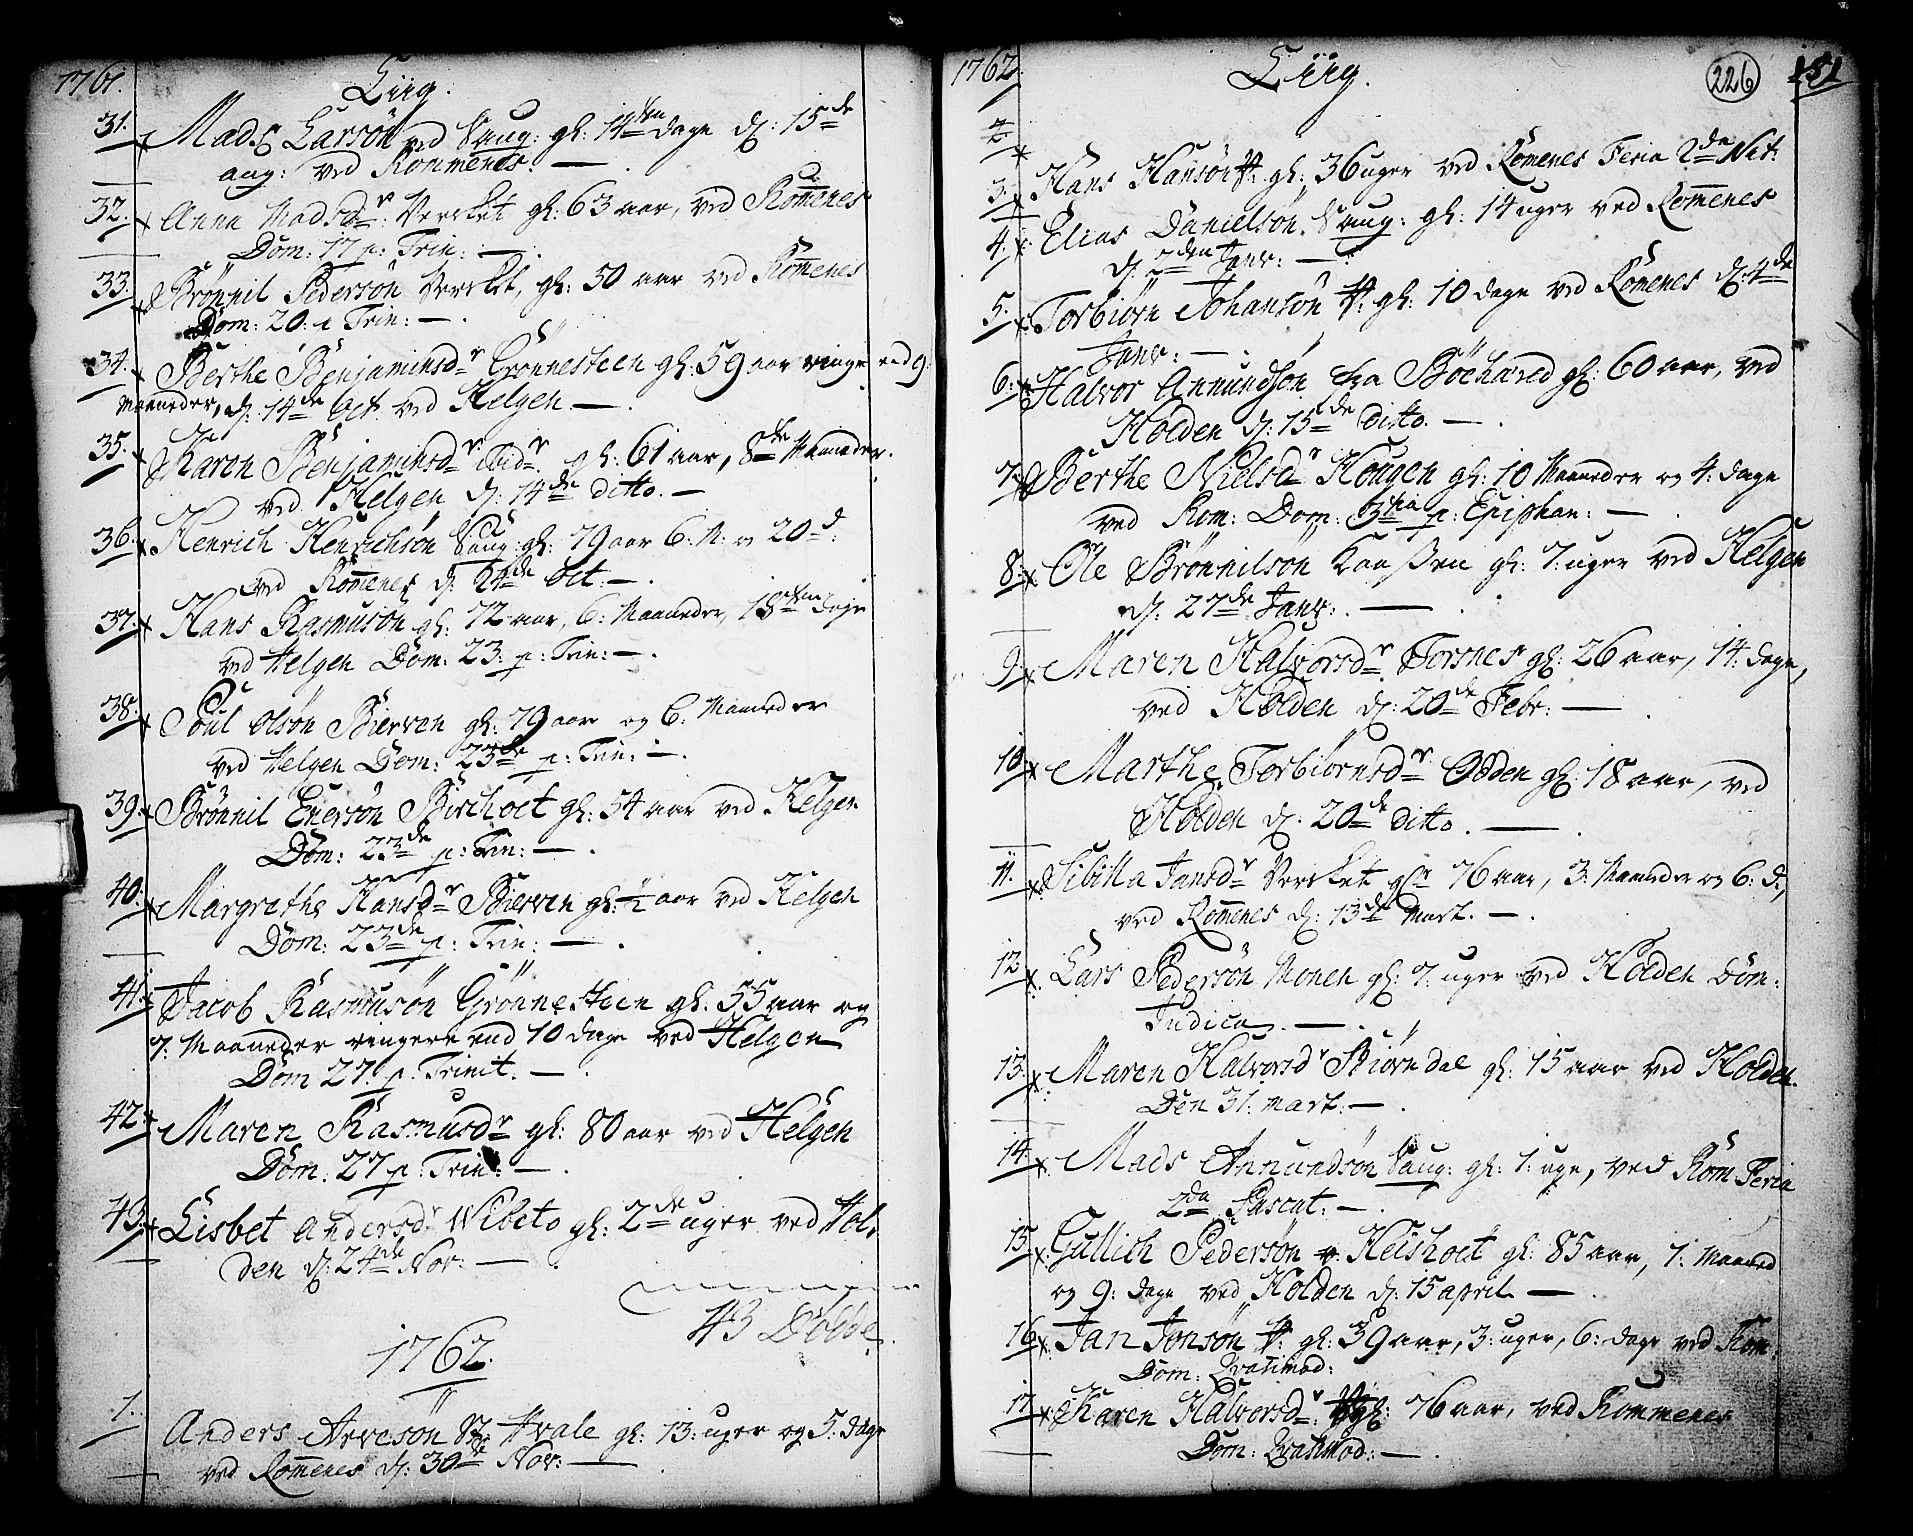 1761.
Liig.
31. Mads Larsøn ved Saug: gl: 14ten dage d: 15de
aug: ved Rommenes. —
32. Anna Madsdr: Verket gl: 63 aar, ved Rommenes
Dom: 17 p: Trin: —.
33. Brønnil Pedersøn Verket, gl: 50 aar ved Rommenes
Dom: 20. p Trin: —.
34. Berthe Benjaminsdr Grønnesteen gl: 59 aar ringe end 9
Maaneder, d: 14de Oct. ved Helgen —.
35. Karen Benjaminsdr ibidr. gl: 61 aar, 8de Maaneder.
ved Helgen d: 14de ditto. —
36. Henrich Henrichsøn Saug: gl: 79 aar 6: M: og 20 d:
ved Rommenes d: 24de Oct. —.
37. Hans Rasmusøn gl: 72 aar, 6: Maaneder, 18ten dage
ved Helgen Dom: 23: p: Trin: —.
38. Poul Olsøn Bierven gl: 79 aar og 6: Maaneder
ved Helgen Dom: 23de p: Trin: —.
39. Brønnil Enersøn Bircholt gl: 54 aar ved Helgen
Dom: 23de p: Trin: —.
40. Margrethe Hansdr Bierven gl: ½ aar ved Helgen
Dom: 23de p: Trin: —.
41. Jacob Rasmusøn Grønnesteen gl: 55 aar og
7: Maaneder ringere end 10 dage ved Helgen
Dom 27. p: Trinit. —.
42. Maren Rasmusdr gl: 80 aar ved Helgen
Dom: 27 p: Trin: —.
43. Lisbet Andersdr Wibeto gl: 2de uger ved Hol-
den d: 24de Nov: —.
43 Døde.
1762.
1. Anders Arvesøn Hvale gl: 13: uger og 5: dage
ved Rommenes d: 30de Nov: —.
1762.
Liig.
226
151
2.
Hans Hansøn gl: 36 uger ved Romenes Feria 2da Nat:
3. Elias Danielsøn. Saug: gl: 14 uger ved Rommenes
4. d: 2den Janv: —.
5. Torbiørn Johansøn gl: 10 dage ved Romenes d: 4de
Janv: —.
6. Halvor Anundsøn fra Bøehared gl: 60 aar, ved
Holden d: 15de ditto. —.
7. Berthe Nielsdr Hougen gl: 10 Maaneder og 4: dage
ved Rom: Dom: 3tia p: Epiphan: —.
8. Ole Brønnilsøn Kaaßen gl: 7: uger ved Helgen
d: 27de Janv: —.
9. Maren Halvorsdr Torsnes gl: 26 aar, 14: dage,
ved Holden d: 20de Febr: —.
10. Marthe Torbiørnsdr Odden gl: 18 aar, ved
Holden d: 20de ditto. —.
11. Sibilla Jansdr Verket gl: 76 aar, 3: Maaneder og 6: d:,
ved Romenes d: 13de Mart. —.
12. Lars Pedersøn Monen gl: 7: uger ved Holden Dom:
Judica. —.
13. Maren Halvorsdr Biørndal gl: 15 aar ved Holden.
Den 31. Mart: —.
14. Mads Annundsøn Saug: gl: 1: uge, ved Rom Feria
2da Pascat: —.
15. Gullich Pedersøn Heisholt gl: 85 aar, 1: Maaned
og 9: dage ved Holden d: 15 april. —.
16. Jan Jonsøn gl: 39 aar, 3: uger, 6: dage ved Rom:
Dom: Qvasimod:
17. Karen Halvorsdr: gl: 76 aar, ved Rommenes
Dom: Qvasimod: —.